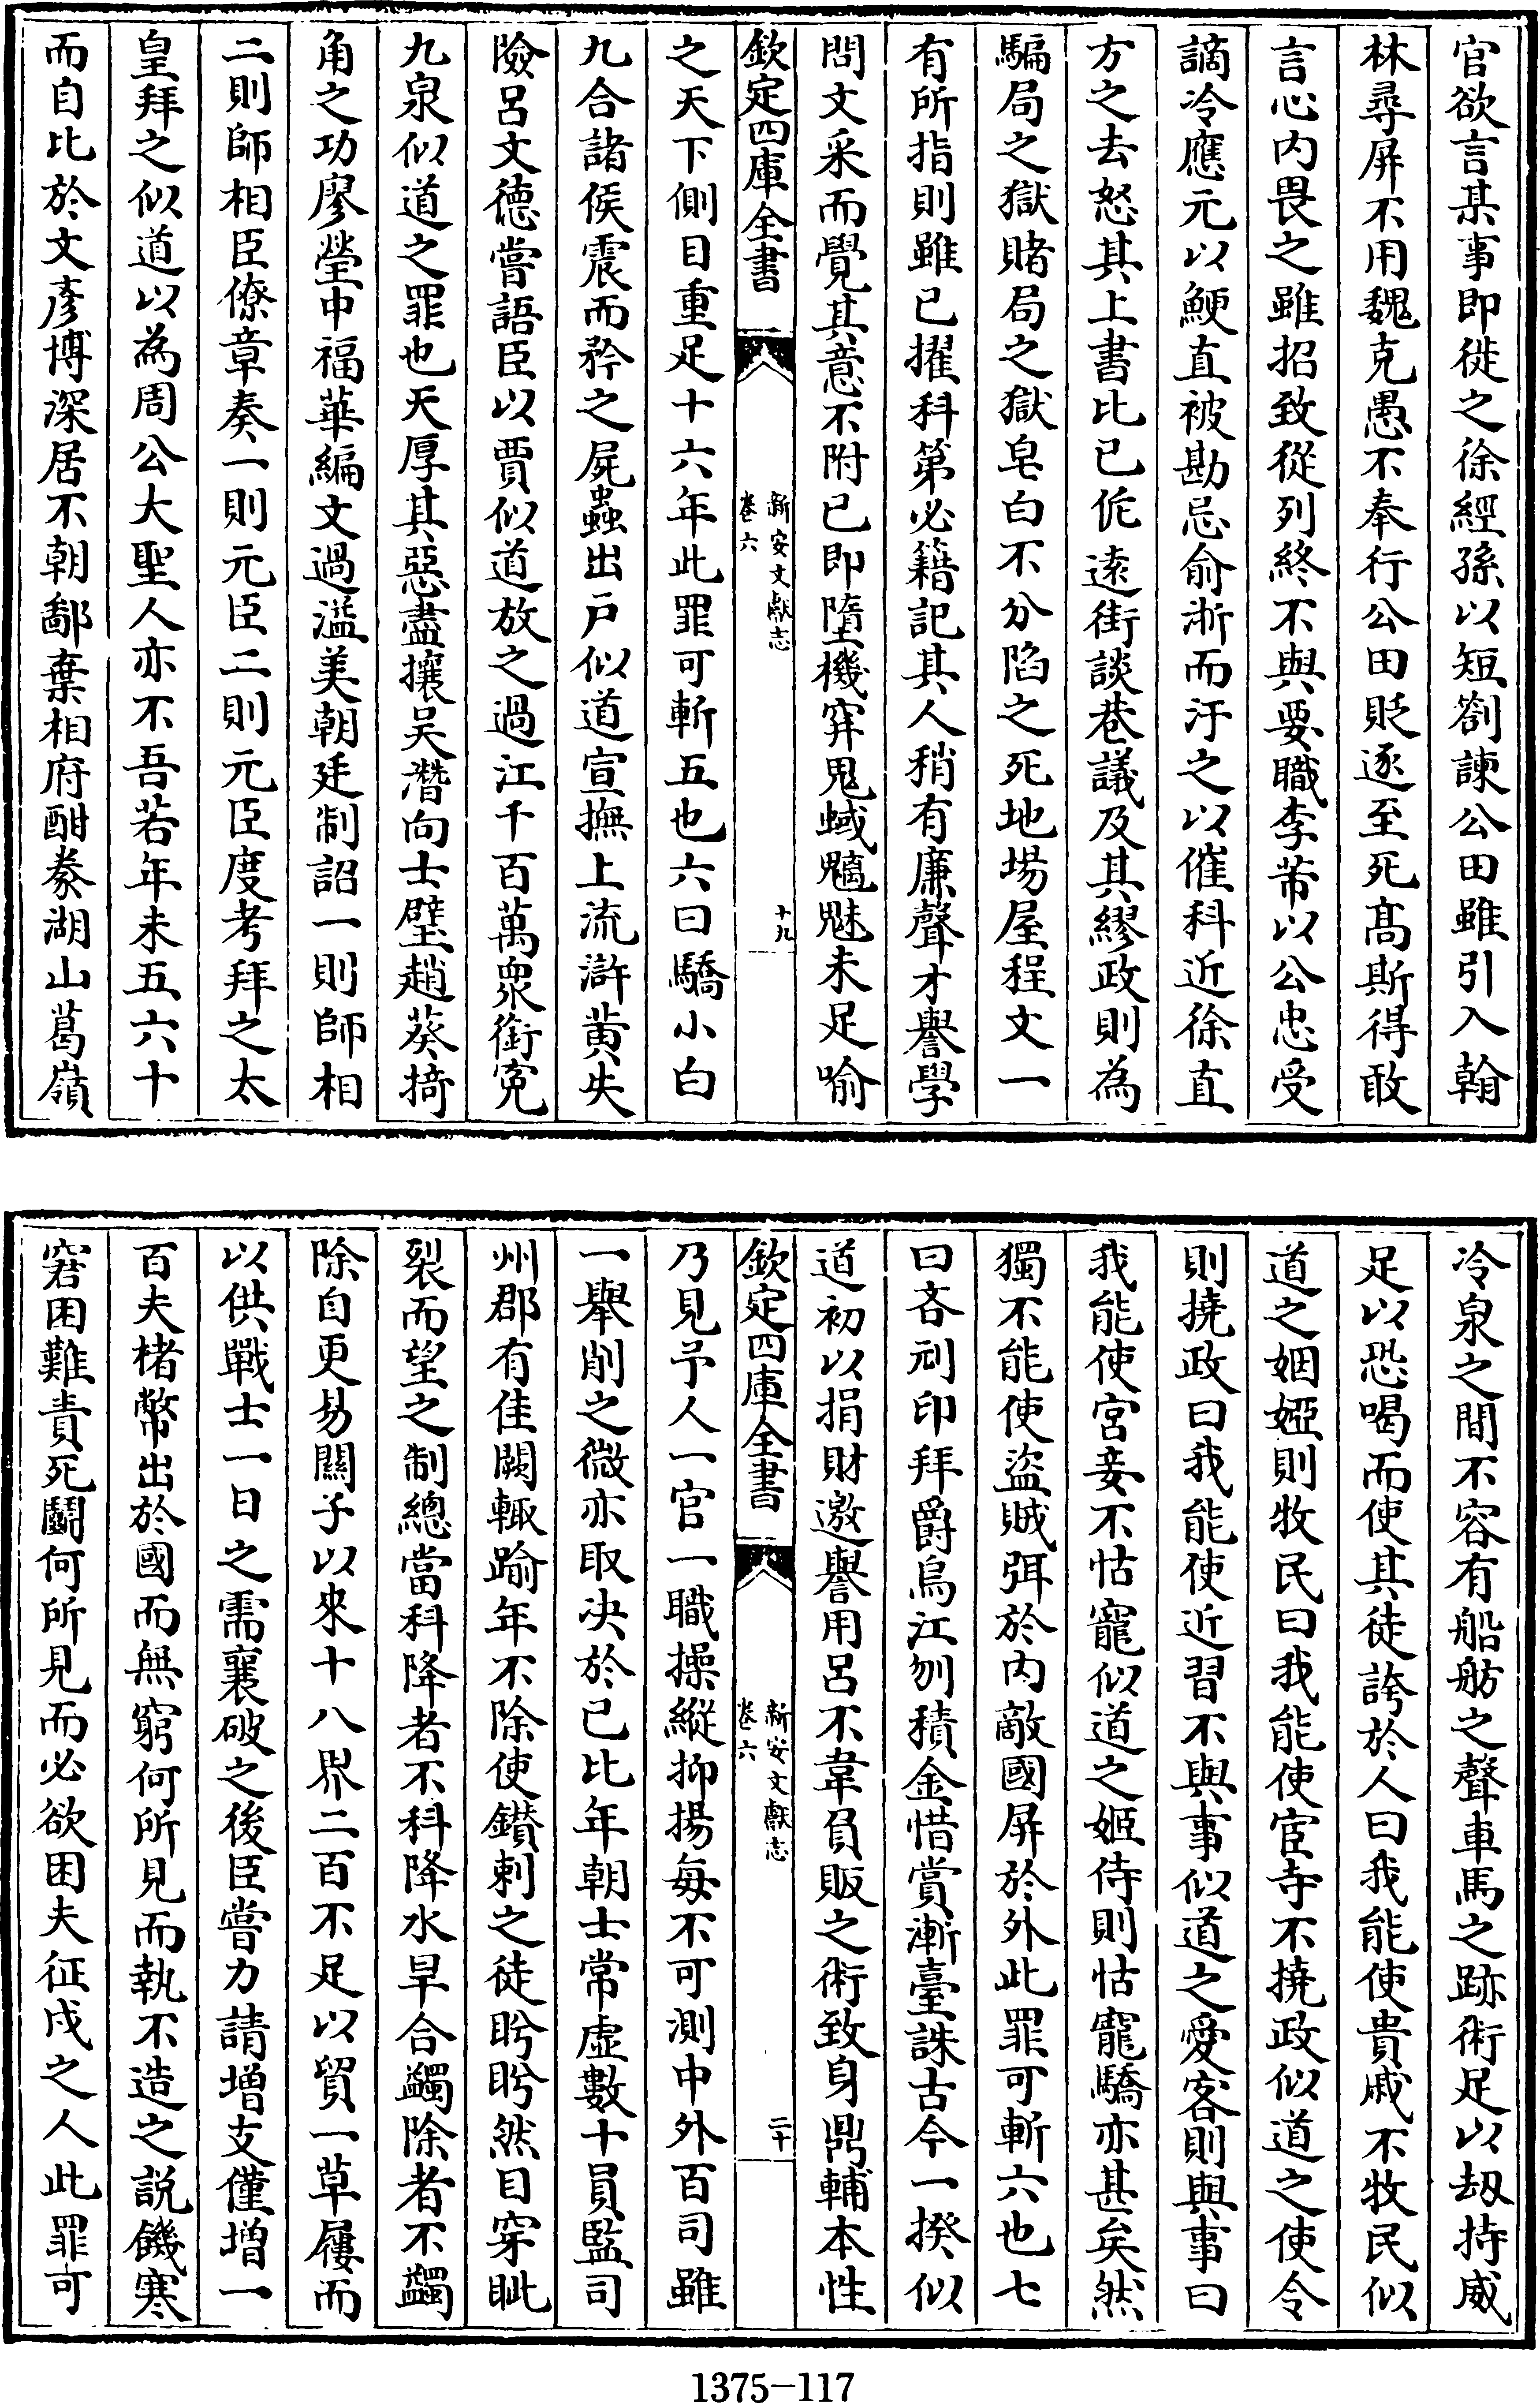 官欲言某事即徙之徐經孫以短劄諫公田雖引入翰
林尋屏不用魏克愚不奉行公田貶逐至死髙斯得敢
言心内畏之雖招致從列終不與要職李芾以公忠受
謫冷應元以鯁直被勘忌俞浙而汙之以催科近徐直
方之去怒其上書比已侂逺街談巷議及其繆政則為
騙局之獄賭局之獄皂白不分陷之死地場屋程文一
有所指則雖已擢科第必籍記其人稍有廉聲才譽學
問文采而覺其意不附已即墮機穽鬼蜮魑魅未足喻
欽定四庫全書
新安文獻志
卷六
十九
之天下側目重足十六年此罪可斬五也六曰驕小白
九合諸侯震而矜之屍蟲出户似道宣撫上流滸黄失
險呂文德嘗語臣以賈似道放之過江千百萬衆銜寃
九泉似道之罪也天厚其惡盡攘吴潛向士璧趙葵掎
角之功廖瑩中福華編文過溢美朝廷制詔一則師相
二則師相臣僚章奏一則元臣二則元臣度考拜之太
皇拜之似道以為周公大聖人亦不吾若年未五六十
而自比於文彦博深居不朝鄙棄相府酣豢湖山葛嶺
冷泉之間不容有船舫之聲車馬之跡術足以刼持威
足以恐喝而使其徒誇於人曰我能使貴戚不牧民似
道之姻婭則牧民曰我能使宦寺不撓政似道之使令
則撓政曰我能使近習不與事似道之愛客則與事曰
我能使宮妾不怙寵似道之姬侍則怙寵驕亦甚矣然
獨不能使盜賊弭於内敵國屏於外此罪可斬六也七
曰吝刓印拜爵烏江刎積金惜賞漸臺誅古今一揆似
道初以捐財邀譽用呂不韋負販之術致身鼎輔本性
欽定四庫全書
新安文獻志
卷六
二十
乃見予人一官一職操縱抑揚每不可測中外百司雖
一舉削之微亦取决於已比年朝士常虛數十員監司
州郡有佳闕輙踰年不除使鑚刺之徒盻盻然目穿眦
裂而望之制總當科降者不科降水旱合蠲除者不蠲
除自更易關子以來十八界二百不足以貿一草屨而
以供戰士一日之需襄破之後臣嘗力請增支僅增一
百夫楮幣出於國而無窮何所見而執不造之説饑寒
窘困難責死鬭何所見而必欲困夫征戍之人此罪可
1375-117